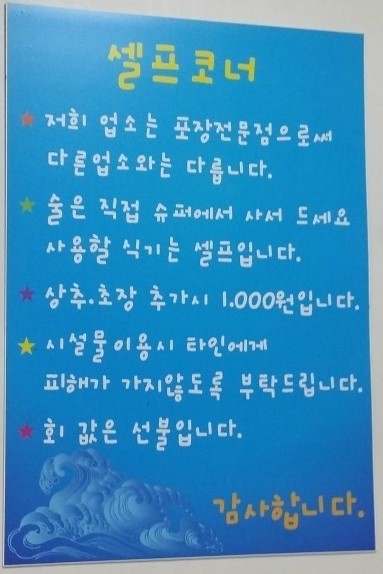 셀프코너
저희 업소는 포장전문점으로써
다른업소와는 다릅니다.
술은 직접 슈퍼에서 사서 드세요
사용할 식기는 셀프입니다.
상추.초장 추가시 1.000원입니다.
시설물이용시 타인에게
피해가 가지않도록 부탁드립니다.
회 값은 선불입니다.
감사합니다.